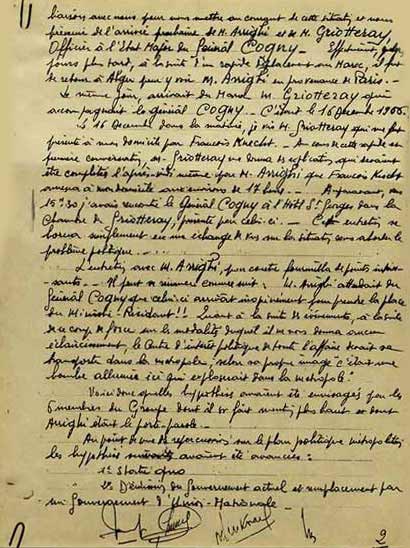 liaison avec nous pour nous mettre au courant de cette situation et nous
prévenir de l'arrivée prochaine de M. Arrighi et de M. Griotteray,
Officier à l'Etat Major du Général Cogny. Effectivement, quelques
jours plus tard, à la suite d'un rapide déplacement au Maroc, il fut
de retour à Alger pour y voir M. Arrighi en provenance de Paris.
Le même jour, arrivait du Maroc M. Griotteray qui
accompagnait le général COGNY. C'était le 16 Décembre 1956.
Le 16 Décembre dans la matinée, je vis M. Griotteray qui me fut
présenté à mon domicile par François Knecht. Au cours de cette rapide et
première conversation, M. Griotteray me donna des explications qui devaient
être complétées l'après-midi même par M. Arrighi que François Knecht
amena à mon domicile aux environs de 17 heures. Auparavant, vers
15h30 j'avais rencontré le Général Cogny à l'Hôtel St Georges dans la
Chambre de Griotteray, présenté par celui-ci. Cette entretien se
borna simplement en un échange de vues sur la situation sans aborder le
problème politique.
L'entretien avec M. Arrighi, par contre fourmilla de points intéres-
sants. Il peut se résumer comme suit : M. Arrighi attendait du
Général Cogny que celui-ci arrivât inopinément pour prendre la place
du Ministre-Résidant !! Quant à la suite des évènements, à la suite
de ce coup de force sur les modalités duquel il ne nous donna aucun
éclaircissement, le Centre d'intérêt politique de toute l'affaire devait se
transporter dans la métropole, selon sa propre image c'était une
bombe allumée ici qui exploserait dans la métropole.
Voici donc quelles hypothèses avaient été envisagées par les
6 membres du Groupe dont il se fait mention plus haut et dont
Arrighi était le porte-parole.
Au point de vue de répercussions sur le plan politique métropolitain
les hypothèses avaient été avancées :
1° Statu quo
2° Démission du Gouvernement actuel et remplacement par
un Gouvernement d'Union Nationale
2